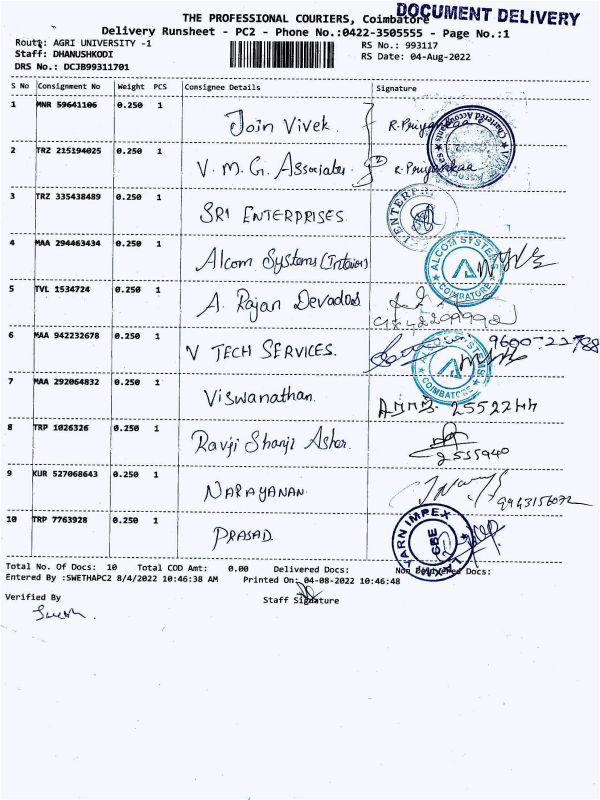 DOCUMENT DELIVERY
THE PROFESSIONAL COURIERS, Coimbatore
Delivery Runsheet - PC2 - Phone No.:0422-3505555 - Page No.:1
Route: AGRI UNIVERSITY -1
RS No.: 993117
Staff: DHANUSHKODI
RS Date: 04-Aug-2022
DRS No.: DCJB99311701
S No Consignment No Weight PCS Consignee Details Signature
1 MNR 59641106 0.250 1 Join Vivek. R. Priyankaa
2 TRZ 215194025 0.250 1 V. M. G. Associates. R. Priyankaa
3 TRZ 335438489 0.250 1 SRI ENTERPRISES
4 MAA 294463434 0.250 1 Alcom Systems (Interior) ALCOM SYSTEMS COIMBATORE
5 TVL 1534724 0.250 1 A. Rajan Devados
6 MAA 942232678 0.250 1 V TECH SERVICES. COIMBATORE
7 MAA 292064832 0.250 1 Viswanathan. 2552244
8 TRP 1026326 0.250 1 Ravji Shanji Asher. 2535940
9 KUR 527068643 0.250 1 NARAYANAN 9943156072
10 TRP 7763928 0.250 1 PRASAD
Total No. Of Docs: 10 Total COD Amt: 0.00 Delivered Docs: Non Delivered Docs:
Entered By :SWETHAPC2 8/4/2022 10:46:38 AM Printed On: 04-08-2022 10:46:48
Verified By
Staff Signature